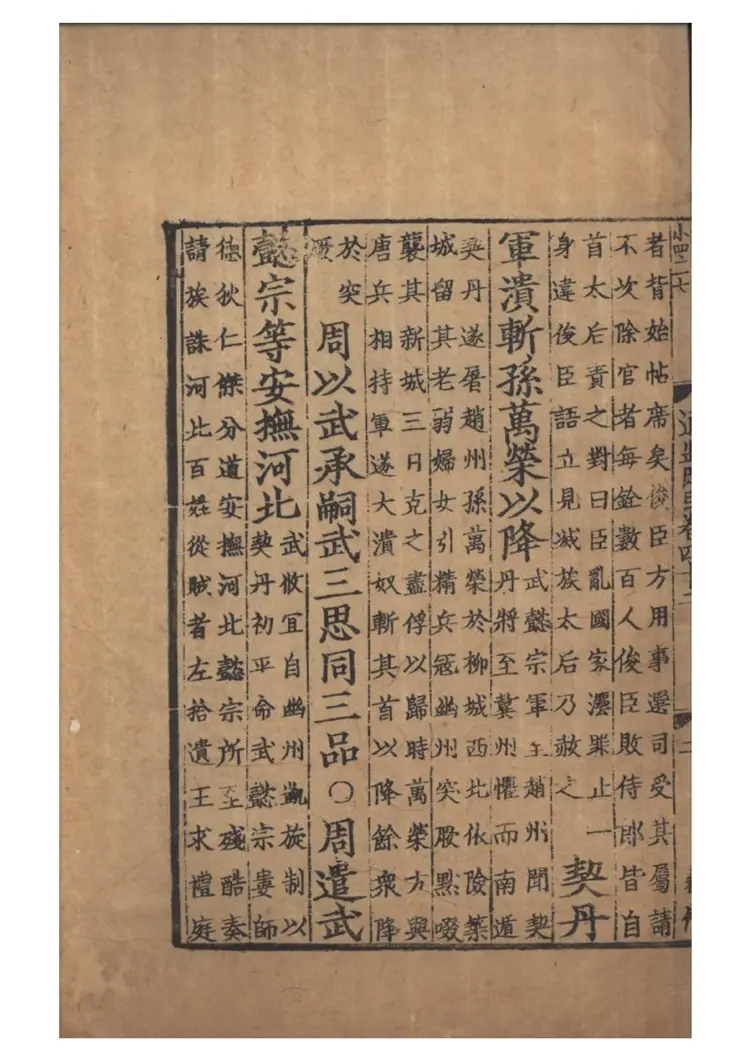 小四二七
卷四十二
二
者昔始帖席矣俊臣方用事選司受其屬請
不次除官者每銓數百人俊臣敗侍郎皆自
首太后責之對曰臣亂國家灋罪止一
身違俊臣語立見滅族太后乃赦之
契丹
軍潰斬孫萬榮以降
武懿宗軍至趙州聞契
丹將至冀州懼而南遁
契丹遂屠趙州孫萬榮於柳城西北依險築
城留其老弱婦女引精兵寇幽州突厥默啜
襲其新城三日克之盡俘以歸時萬榮方與
唐兵相持軍遂大潰奴斬其首以降餘衆降
於突
厥
周以武承嗣武三思同三品○周遣武
懿宗等安撫河北
武攸宜自幽州凱旋制以
契丹初平命武懿宗婁師
德狄仁傑分道安撫河北懿宗所至殘酷奏
請族誅河北百姓從賊者左拾遺王求禮庭